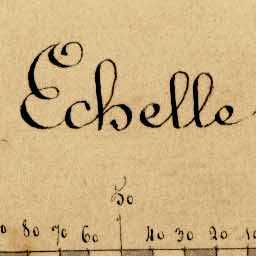 Echelle
50
80 70 60 40 30 20 10